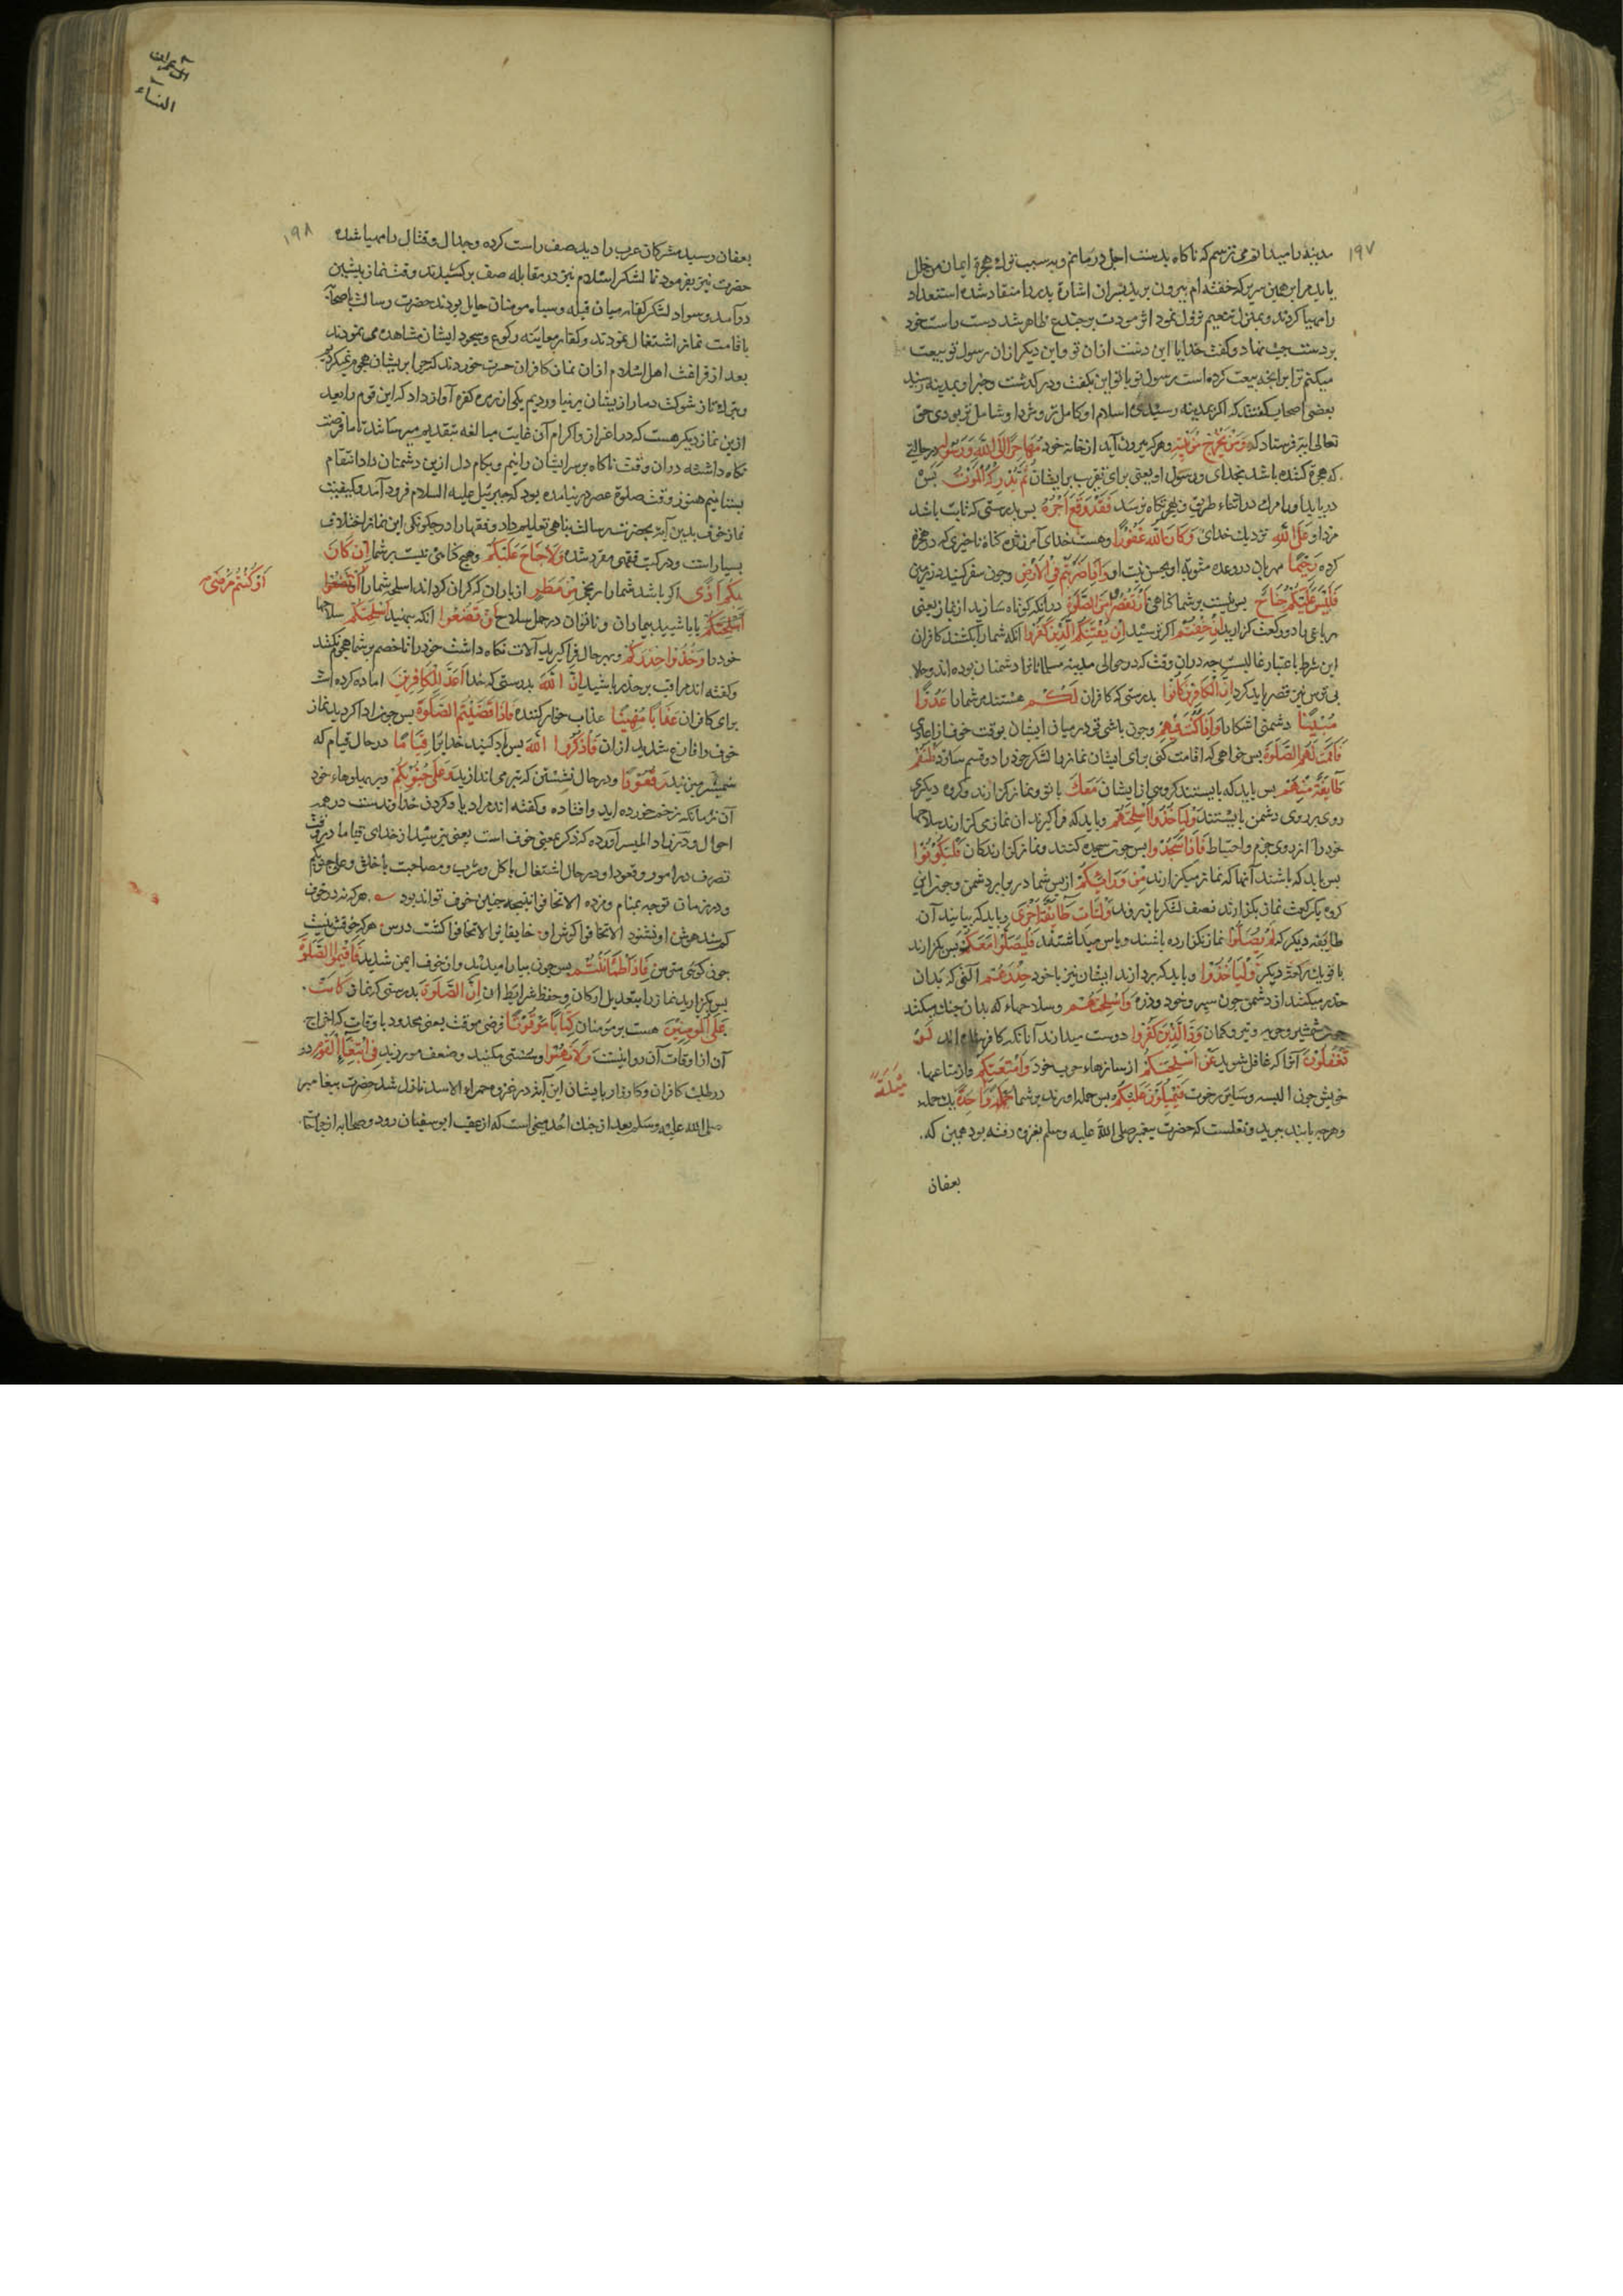 ۱۹۷
مدینه را میدانم می ترسم که ناکاه بدست اجل درمانم و به سبب ترك هجرة ایمان من خلل
یابد مرا برهمین سریر که خفته ام بیرون برید پسران اشارة پدر را منقاد شده استعداد
را مهیا کردند و بمنزل تنعیم نزول نمود اثر موت بر جندع ظاهر شد دست راست خود
بر دست چپ نهاد و کفت خدایا این دست ازان تو و این دیکر ازان رسول تو بیعت
میکنم ترا برانچه بیعت کرده است رسول تو با تو این بکفت و در کذشت و خبر او بمدینه رسید
بعضی اصحاب کفتند که اکر بمدینه رسیدی اسلام او کامل تر و مزد او شامل تر بودی حق
تعالی آیة فرستاد که وَمَنْ يَخْرُجْ مِنْ بَيْتِهِ و هر که بیرون آید از خانه خود مُهَاجِرًا اِلَى اللّٰهِ وَرَسُولِهِ در حالتی
که هجرة کننده باشد بخدای و رسول او یعنی برای تقرب برایشان ثُمَّ يُدْرِكْهُ الْمَوْتُ پس
دریابد او را مرك در اثناء طریق و بهجرتکاه نرسد فَقَدْ وَقَعَ اَجْرُهُ پس بدرستی که ثابت باشد
مزد او عَلَى اللّٰهِ نزدیك خدای وَكَانَ اللّٰهُ غَفُورًا و هست خدای آمرزنده کناه تاخیری که در هجرة
کرده رَحِيمًا مهربان در وعده مثوبة او بحسن نیت او وَاِذَا ضَرَبْتُمْ فِى الْاَرْضِ و چون سفر کنید در زمین
فَلَيْسَ عَلَيْكُمْ جُنَاحٌ پس نیست بر شما کناهی اَنْ تَقْصُرُوا مِنَ الصَّلٰوةِ درانکه کوتاه سازید از نماز یعنی
رباعی را دو رکعت کزارید اِنْ خِفْتُمْ اکر ترسید اَنْ يَفْتِنَكُمُ الَّذِينَ كَفَرُوا انکه شما را بکشند کافران
این شرط باعتبار غالبست چه دران وقت که در حوالی مدینه دشمنان بوده اند و حالا
بی ترس نیز قصر باید کرد اِنَّ الْكَافِرِينَ كَانُوا بدرستی که کافران لَكُمْ هستند مر شما را عَدُوًّا
مُبِينًا دشمنی اشکارا وَاِذَا كُنْتَ فِيهِمْ و چون باشی تو در میان ایشان بوقت خوف از اعادی
فَاَقَمْتَ لَهُمُ الصَّلٰوةَ پس خواهی که اقامت کنی برای ایشان نماز را لشکر خود را دو قسم ساز فَلْتَقُمْ
طَآئِفَةٌ مِنْهُمْ پس باید که بایستند کروهی از ایشان مَعَكَ با تو و نماز کزارند و کروه دیکری
روی بروی دشمن بایستند وَلْيَاْخُذُوا اَسْلِحَتَهُمْ و باید که فرا کیرند ان نمازی کزارند سلاحها
خود را از روی حزم و احتیاط فَاِذَا سَجَدُوا پس چون سجده کنند و نماز کزارند کان فَلْيَكُونُوا
پس باید که باشند آنها که نماز میکزارند مِنْ وَرَائِكُمْ از پس شما در برابر دشمن و چون این
کروه یکرکعت نماز بکزارند نصف لشکر باز روند وَلْتَاْتِ طَآئِفَةٌ اُخْرٰى و باید که بیایند آن
طایفه دیکر که لَمْ يُصَلُّوا نماز نکزارده باشند و پاس میداشتند فَلْيُصَلُّوا مَعَكَ پس بکزارند
با تو یك رکعت دیکر وَلْيَاْخُذُوا و باید که بردارند ایشان نیز با خود حِذْرَهُمْ آلتی که بدان
حذر میکنند از دشمن چون سپر و خود و زره وَاَسْلِحَتَهُمْ و سلاحهاء که بدان جنك میکنند
چون شمشیر و حربه و تیر و کمان وَدَّ الَّذِينَ كَفَرُوا دوست میدارند آنانکه کافر شده اند لَوْ
تَغْفُلُونَ آنرا که غافل شوید عَنْ اَسْلِحَتِكُمْ از سازهاء حرب خود وَاَمْتِعَتِكُمْ و از متاعها
خویش چون البسه و سایر رخوت فَيَمِيلُونَ عَلَيْكُمْ پس حمله اورند بر شما وَاحِدَةً یك حمله
مَيْلَةً
و هرچه یابند ببرند و نقلست که حضرت پیغمبر صلی الله علیه وسلم بغزوه رفته بود همین که
بعفان
آل عمران
النساء
۱۹۸
بعفان رسید مشرکان عرب را دید صف راست کرده و جدال و قتال را مهیا شده
حضرت نیز بفرمود تا لشکر اسلام نیز در مقابله صف برکشیدند وقت نماز پیشین
درآمد و سواد لشکر کفار میان قبله و سپاه مومنان حایل بودند حضرت رسالت باصحابه
باقامت نماز اشتغال نمودند و کفار معاینه رکوع و سجود ایشان مشاهده می نمودند
بعد از فراغت اهل اسلام ازان نماز کافران حسرت خوردند که چرا برایشان هجوم نمیکردیم
شوکت دمار از ایشان بر نیاوردیم یکی از زمره کفره آواز داد که این قوم را بعد
ازین نماز دیکر هست که در اعزاز و اکرام آن غایت مبالغه بتقدیم میرسانند تا ما فرصت
نکاه داشته دران وقت ناکاه بر سر ایشان رانیم و بکام دل ازین دشمنان داد انتقام
بستانیم هنوز وقت صلوة عصر در نیامده بود که جبرئیل علیه السلام فرود آمد و کیفیت
نماز خوف بدین آیة بحضرت رسالت پناهی تعلیم داد و فقها را در چکونکی این نماز اختلاف
بسیار است و در کتب فقهی مقرر شده وَلَا جُنَاحَ عَلَيْكُمْ و هیچ کناهی نیست بر شما اِنْ كَانَ
بِكُمْ اَذًى اکر باشد شما را رنجی مِنْ مَطَرٍ از باران که کران کرداند اسلحه شما را اَنْ تَضَعُوا
اَوْ كُنْتُمْ مَرْضٰى
اَسْلِحَتَكُمْ یا باشید بیماران و ناتوان در حمل سلاح اَنْ تَضَعُوا انکه بنهید اَسْلِحَتَكُمْ سلاحها
خود را وَخُذُوا حِذْرَكُمْ و بهر حال فرا کیرید آلات نکاه داشت خود را تا خصم بر شما هجوم نکند
و کفته اند مراقب بر حذر باشید اِنَّ اللّٰهَ بدرستی که خدا اَعَدَّ لِلْكَافِرِينَ اماده کرده است
برای کافران عَذَابًا مُهِينًا عذاب خوار کننده فَاِذَا قَضَيْتُمُ الصَّلٰوةَ پس چون ادا کردید نماز
خوف را و فارغ شدید ازان فَاذْكُرُوا اللّٰهَ پس یاد کنید خدایرا قِيَامًا در حال قیام که
شمشیر میزنید وَقُعُودًا و در حال نشستن که تیر می اندازید وَعَلٰى جُنُوبِكُمْ و بر پهلوهاء خود
آن زمانکه زخم خورده اید و افتاده و کفته اند مراد یاد کردن خداوندست در همه
احوال و در زاد المیسر آورده که ذکر بمعنی خوف است یعنی بترسید از خدای قیاما در وقت
تصرف در امور و قعودا و در حال اشتغال باکل و شرب و مصاحبت با خلق وعلی جنوبکم
و در زمان توجه بمنام و مژده الا تخافوا نتیجه چنین خوف تواند بود هر که نه در خوف
کوشد هوش او نشنود الا تخافوا کوش او خایفانرا لا تخافوا کشت درس هر که خوفش نیست
چون کوئی مترس فَاِذَا اطْمَاْنَنْتُمْ پس چون بیارامیدید و از خوف ایمن شدید فَاَقِيمُوا الصَّلٰوةَ
پس بکزارید نماز را بتعدیل ارکان و حفظ شرایط ان اِنَّ الصَّلٰوةَ بدرستی که نماز كَانَتْ
عَلَى الْمُؤْمِنِينَ هست بر مؤمنان كِتَابًا مَوْقُوتًا فرضی موقت یعنی محدود باوقات که اخراج
آن از اوقات آن روا نیست وَلَا تَهِنُوا و سستی مکنید و ضعف مورزید فِى ابْتِغَآءِ الْقَوْمِ در
در طلب کافران و کارزار با ایشان این آیة در غزوه حمراء الاسد نازل شد حضرت پیغامبر
صلی الله علیه وسلم بعد از جنك احد میخواست که از عقب ابوسفیان رود و صحابه از جراحتها